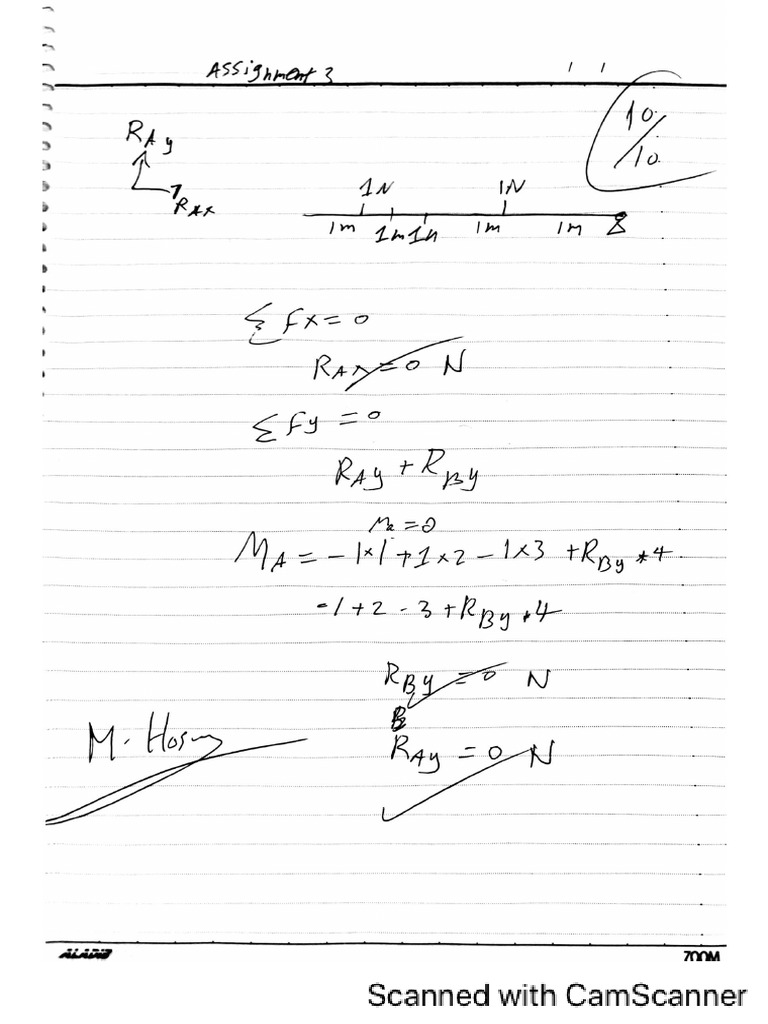 Assignment 3
10/10
RAy
RAx
1N 1N
1m 1m 1m 1m
Σ Fx = 0
RAx = 0 N
Σ Fy = 0
RAy + RBy
MA = -1×1 + 1×2 - 1×3 + RBy * 4
-1 + 2 - 3 + RBy * 4
RBy = 0 N
RAy = 0 N
ALADIB
700M
Scanned with CamScanner